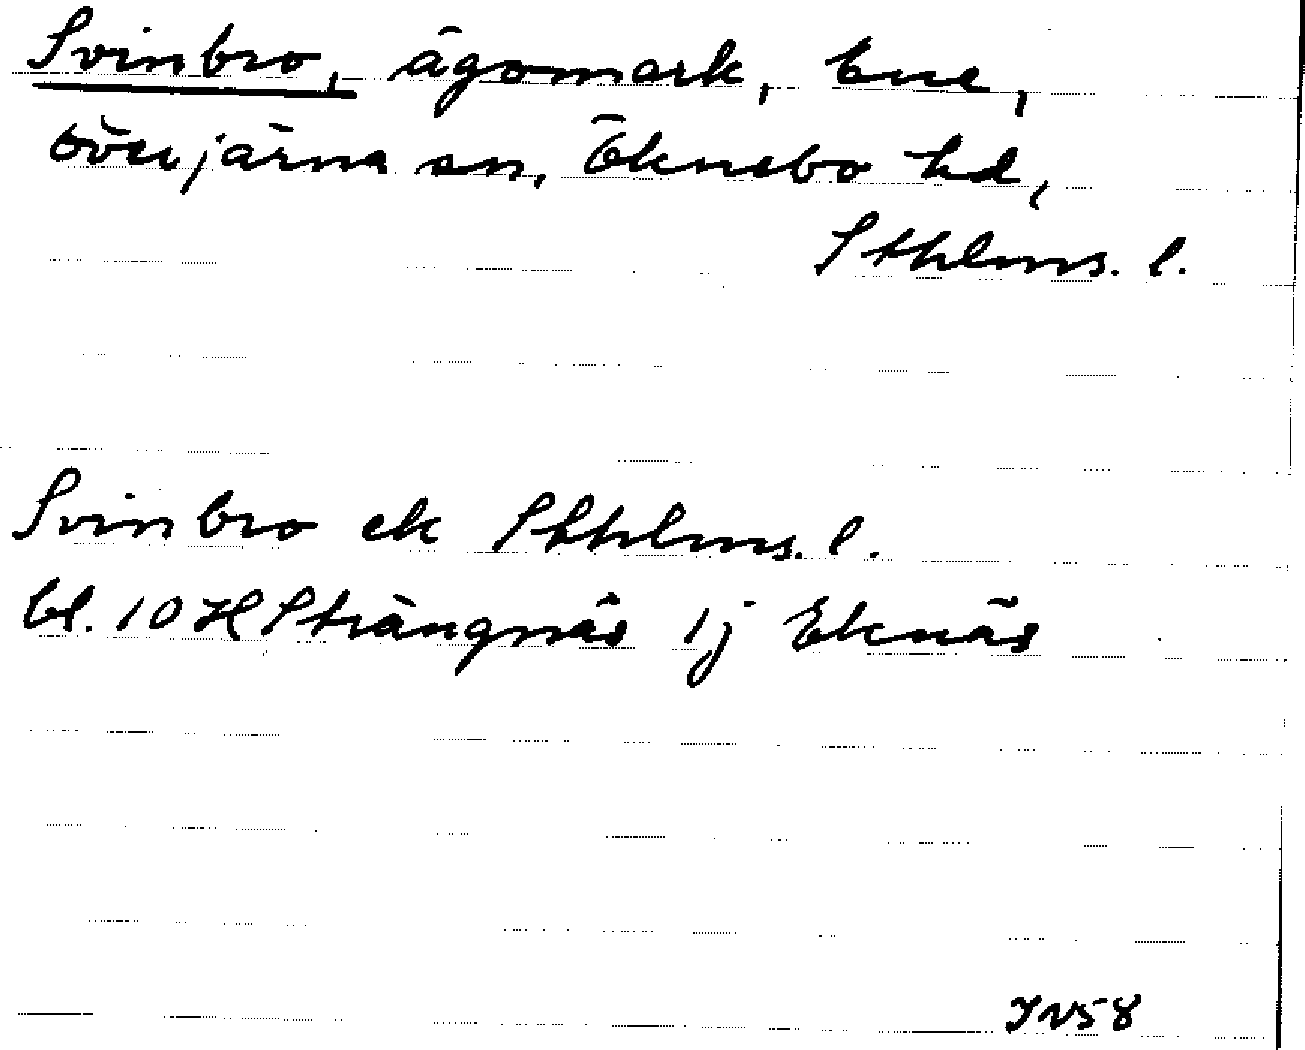 Svinbro, ägomark, bne,
överjärna sn, Öknebo hd,
Sthlms. l.
Svinbro ek Sthlms. l.
bl. 10 H Strängnäs 1j Eknäs
JV58